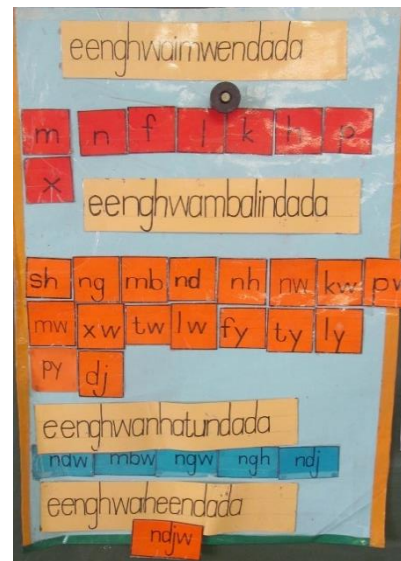 eenghwaimwendada
m n f l k h p
x
eenghwambalindada
sh ng mb nd nh nw kw pw
mw xw tw lw fy ty ly
py dj
eenghwanhatundada
ndw mbw ngw ngh ndj
eenghwaheendada
ndjw